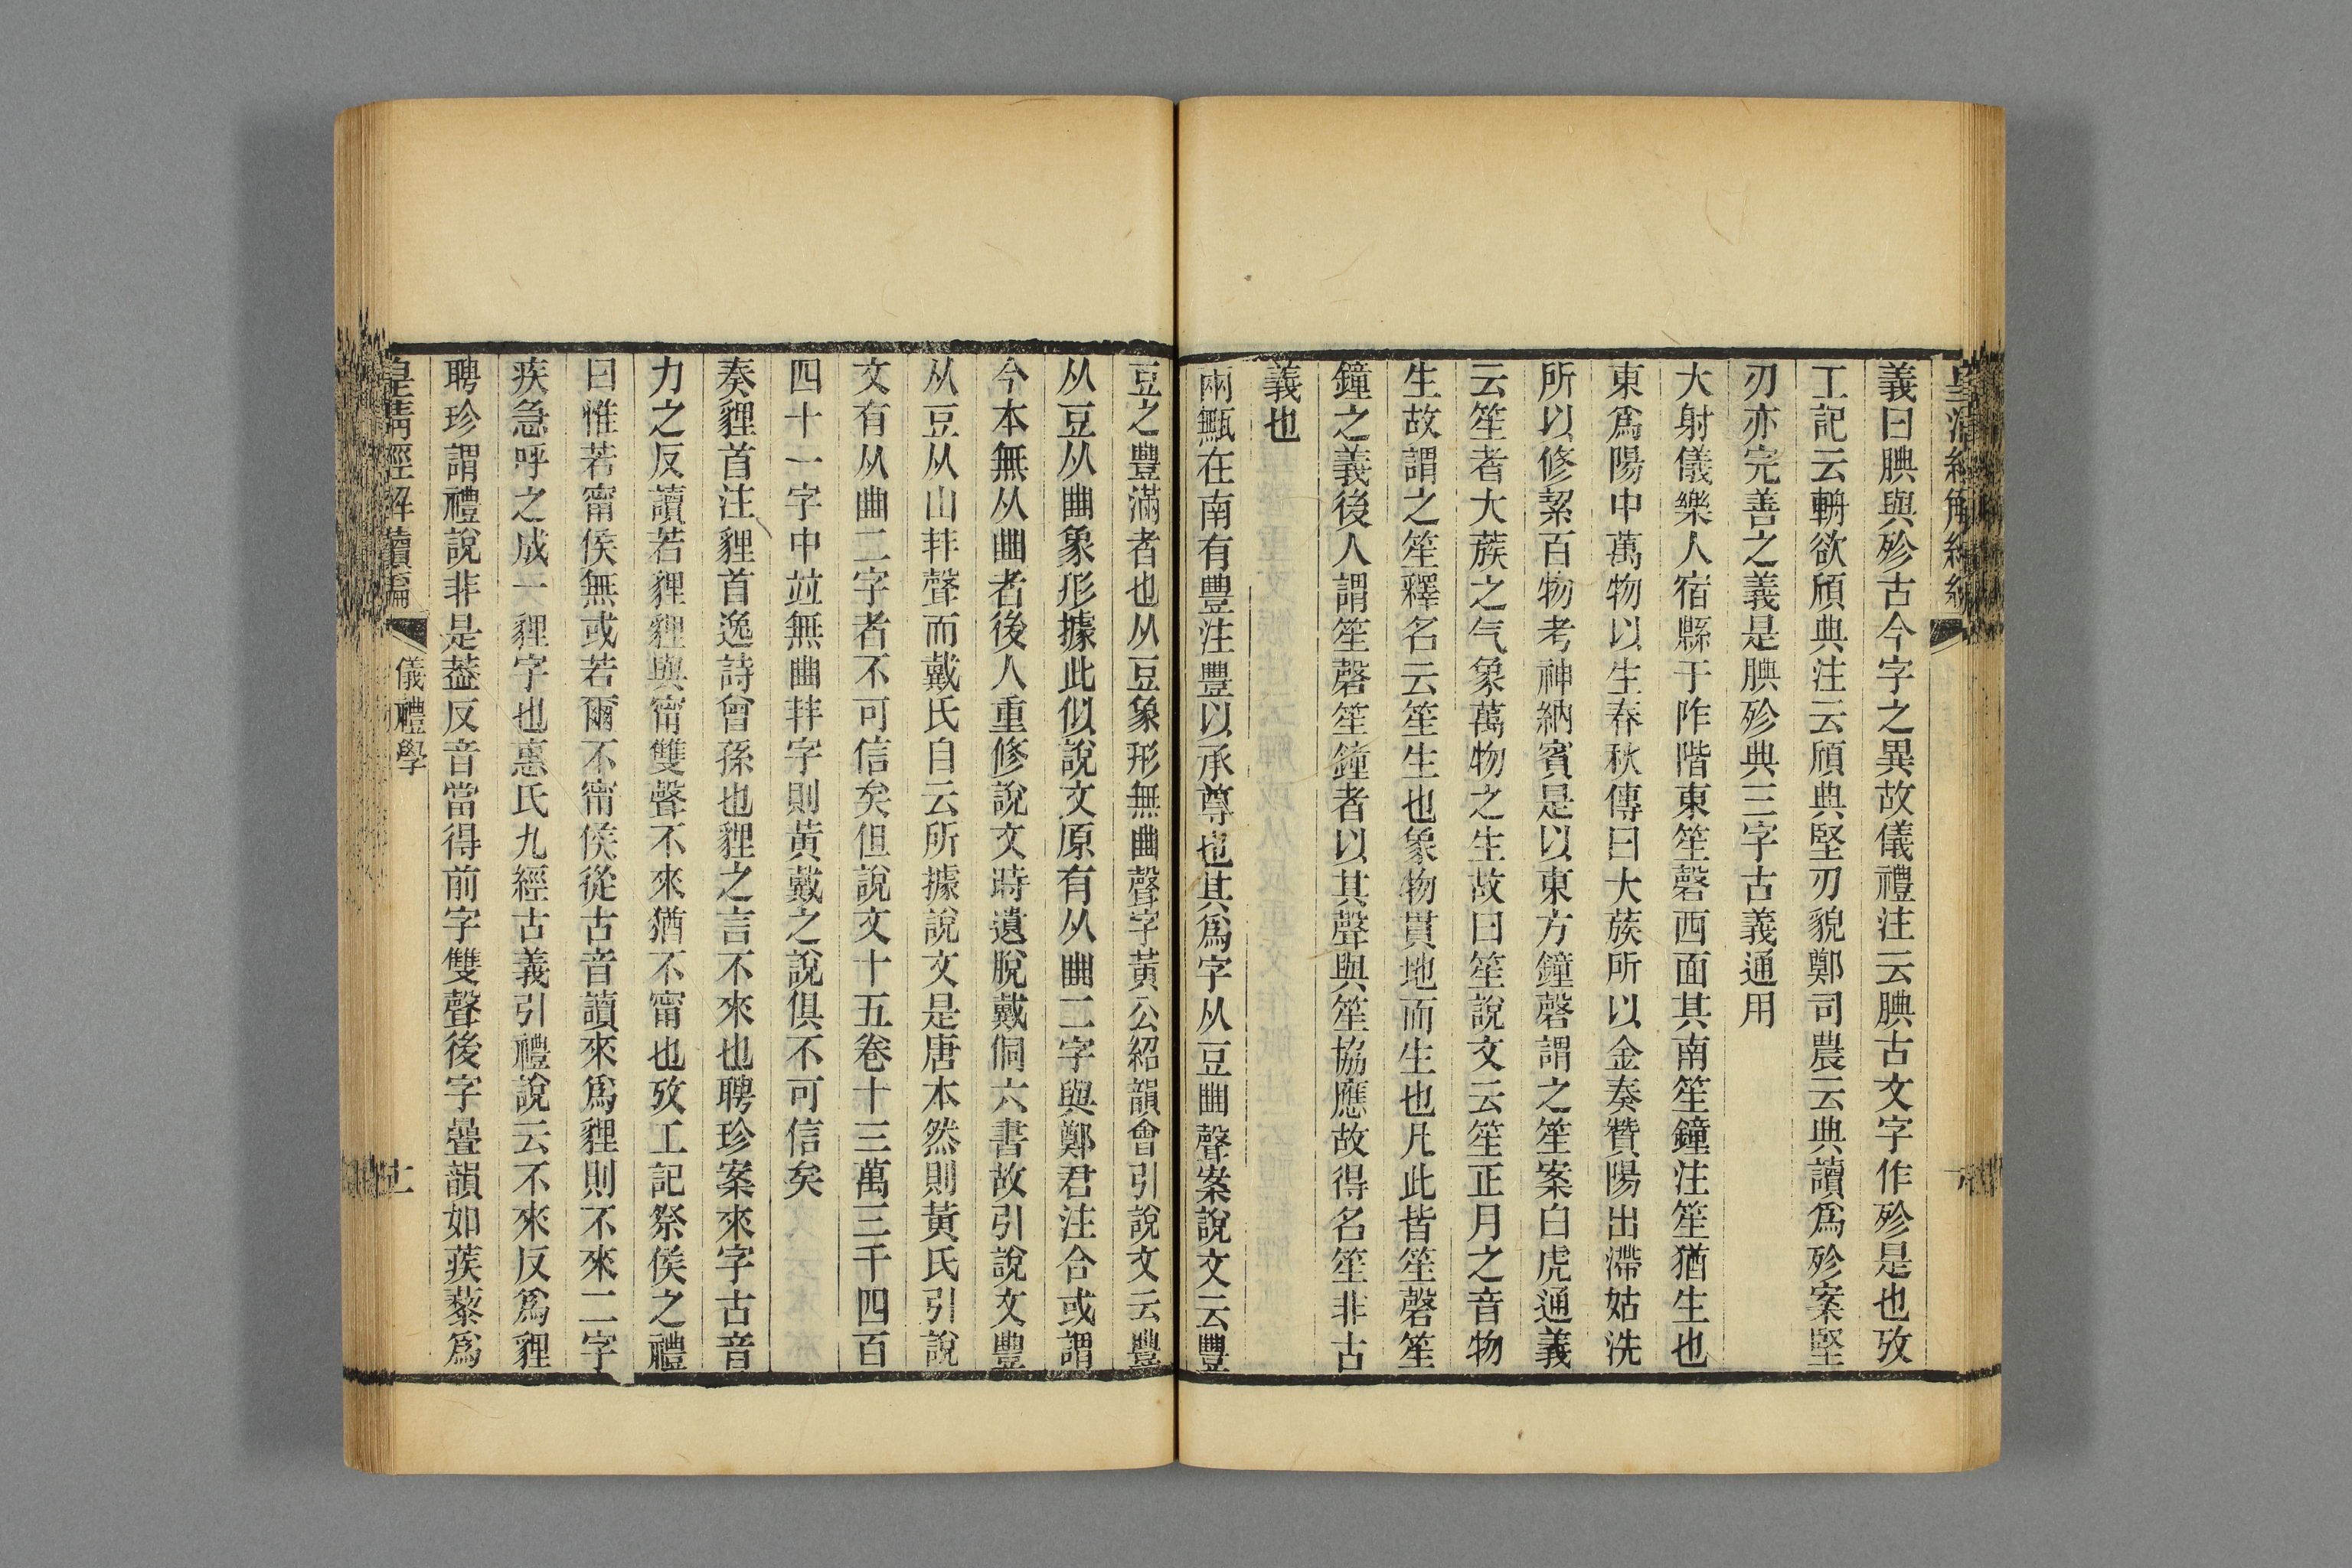 義曰腆與殄古今字之異故儀禮注云腆古文字作殄是也攷
工記云輈欲頎典注云頎典堅刃貌鄭司農云典讀爲殄案堅
刃亦完善之義是腆殄典三字古義通用
大射儀樂人宿縣于阼階東笙磬西面其南笙鐘注笙猶生也
東爲陽中萬物以生春秋傳曰大蔟所以金奏贊陽出滯姑洗
所以修絜百物考神納賓是以東方鐘磬謂之笙案白虎通義
云笙者大蔟之气象萬物之生故曰笙說文云笙正月之音物
生故謂之笙釋名云笙生也象物貫地而生也凡此皆笙磬笙
鐘之義後人謂笙磬笙鐘者以其聲與笙協應故得名笙非古
義也
兩甒在南有豐注豐以承尊也其爲字从豆𠁳聲案說文云豐
豆之豐滿者也从豆象形無𠁳聲字黃公紹韻會引說文云豐
从豆从𠁳象形據此似說文原有从𠁳二字與鄭君注合或謂
今本無从𠁳者後人重修說文時遺脫戴侗六書故引說文豐
从豆从山丰聲而戴氏自云所據說文是唐本然則黃氏引說
文有从𠁳二字者不可信矣但說文十五卷十三萬三千四百
四十一字中竝無𠁳丰字則黃戴之說俱不可信矣
奏貍首注貍首逸詩曾孫也貍之言不來也聘珍案來字古音
力之反讀若貍貍與甯雙聲不來猶不甯也攷工記祭侯之禮
曰惟若甯侯無或若爾不甯侯從古音讀來爲貍則不來二字
疾急呼之成一貍字也惠氏九經古義引禮說云不來反爲貍
聘珍謂禮說非是葢反音當得前字雙聲後字疊韻如蒺藜爲
皇淸經解續編
儀禮學